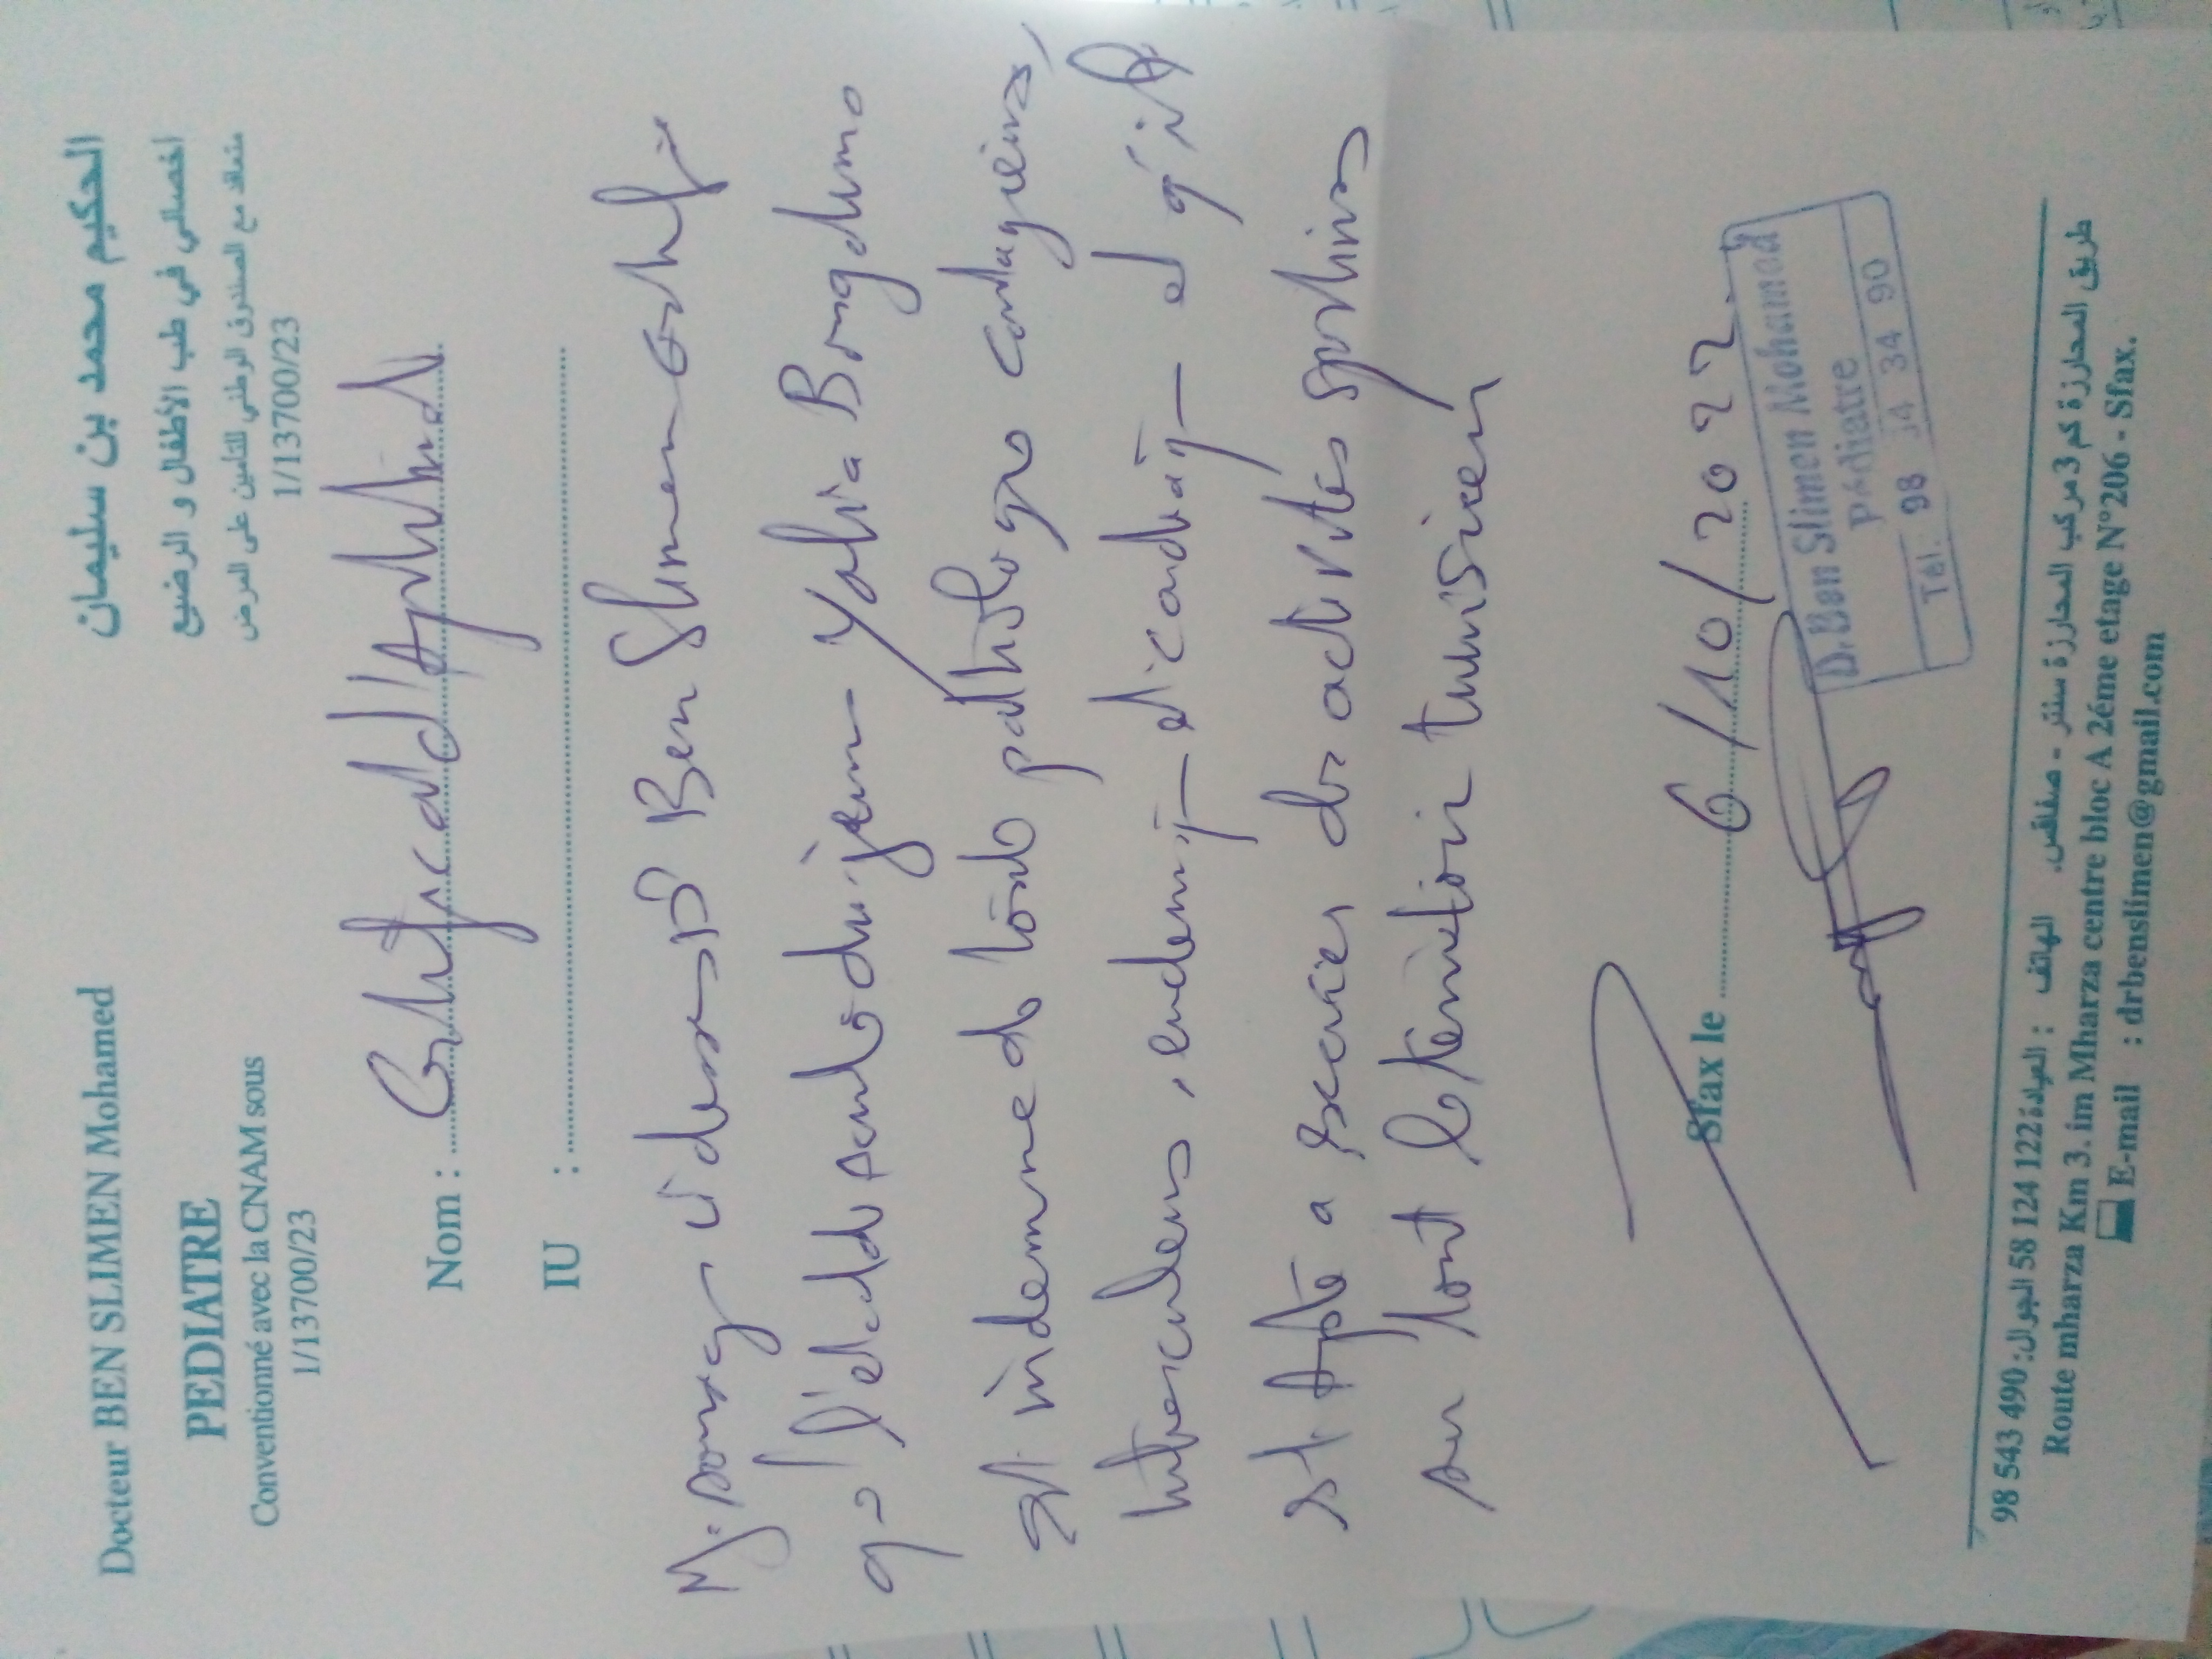 Docteur BEN SLIMEN Mohamed
الحكيم محمد بن سليمان
PEDIATRE
أخصائي في طب الأطفال و الرضيع
Conventionné avec la CNAM sous
متعاقد مع الصندوق الوطني للتأمين على المرض
1/13700/23
1/13700/23
Nom : Certificat d'Aptitude
IU :
Ben Slimen certifie
que l'état de santé du jeune Yahia
est indemne de toute pathologie contagieuse,
tuberculeuse, endémique et cardiaque et qu'il
est Apte a exercer des activités sportives
sur tout le térritoire tunisien
Sfax le 6/10/2022
Dr Ben Slimen Mohamed
Pédiatre
Tél. 98 34 90
98 543 490 :الهاتف : العيادة 122 124 58 الجوال
طريق المحارزة كم 3 مركب المحارزة سنتر - صفاقس.
Route mharza Km 3. im Mharza centre bloc A 2éme etage N°206 - Sfax.
E-mail : drbenslimen@gmail.com